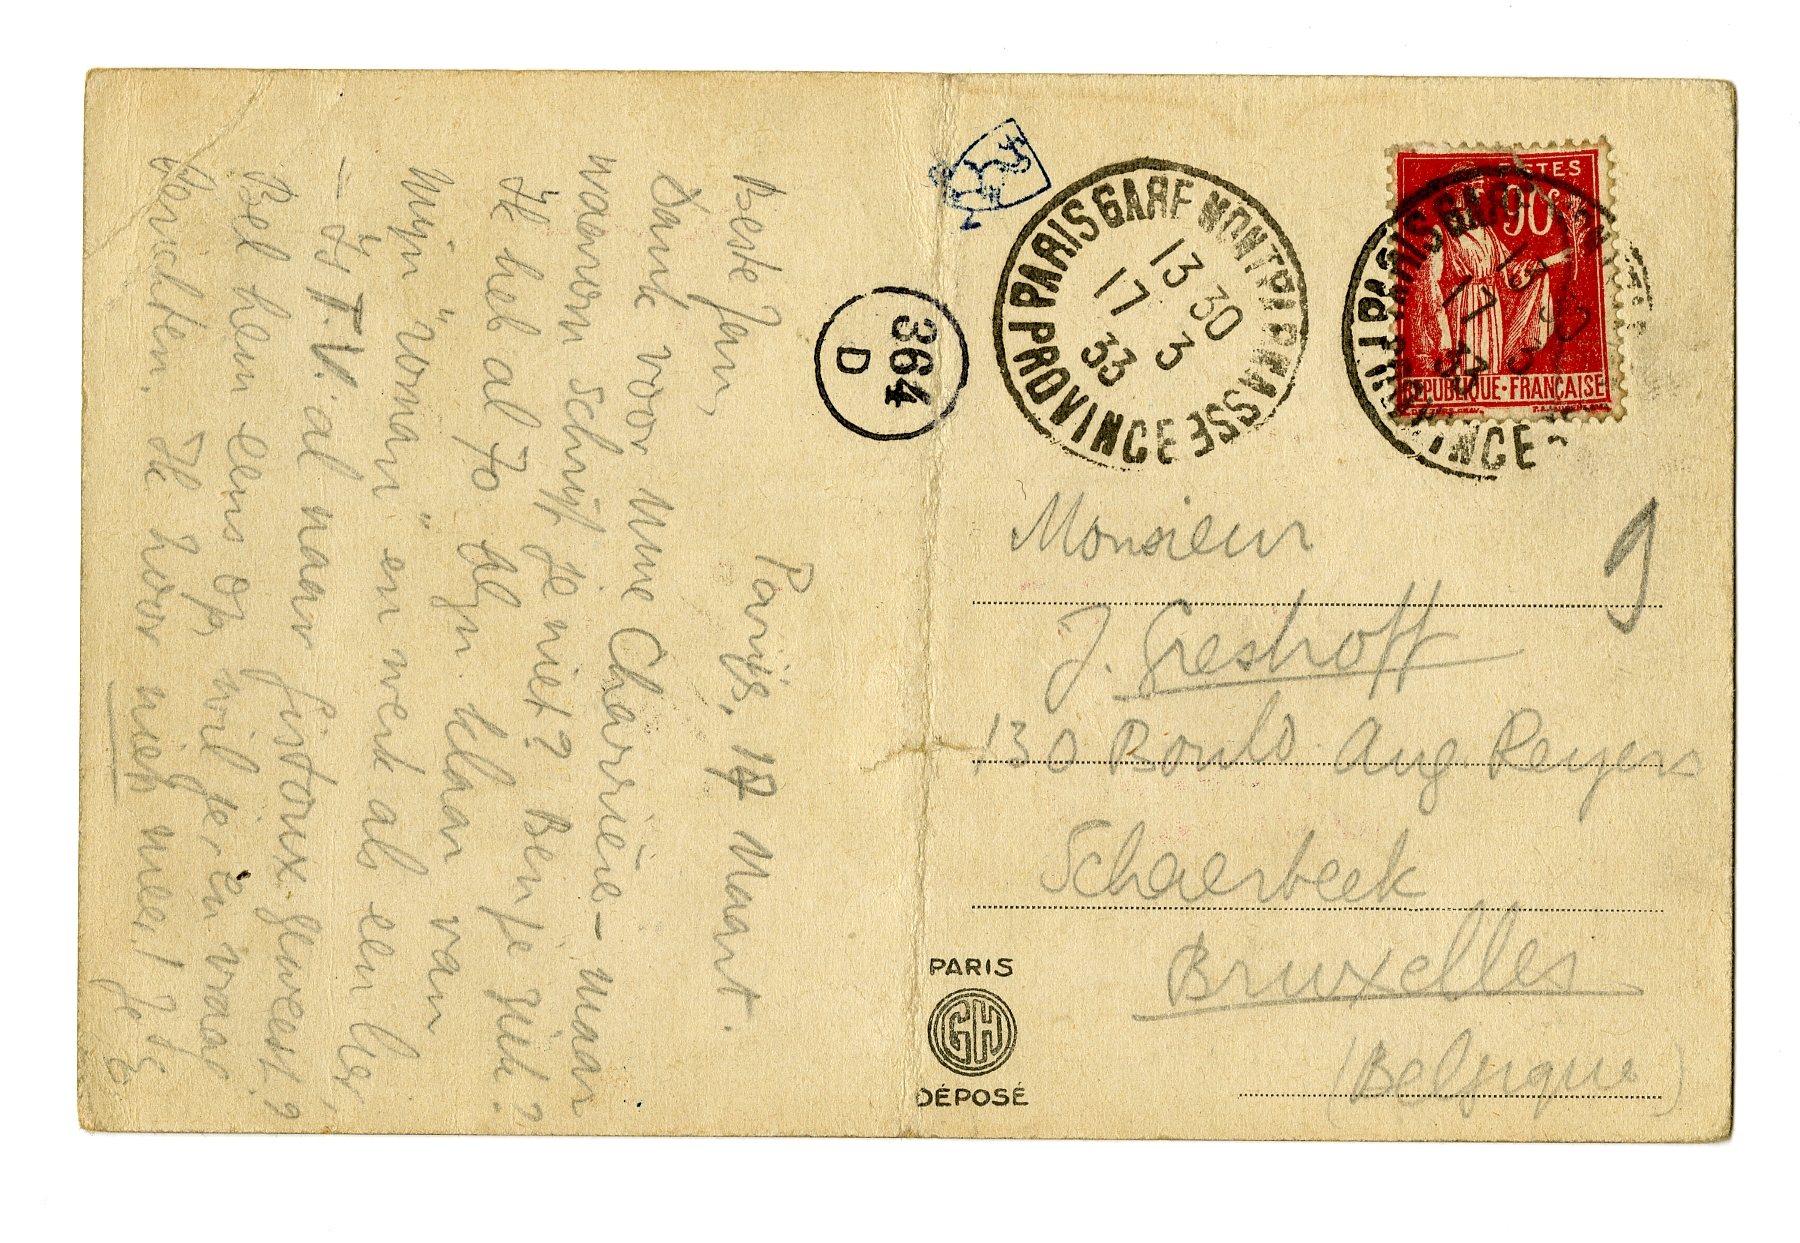 Parijs, 17 Maart.
Beste Jan,
Dank voor Mme Charrière - maar
waarom schrijf je niet? Ben je ziek?
Ik heb al 70 blzn. klaar van
mijn "roman" en werk als een lier.
- Is F.V. al naar Gistoux geweest?
Bel hem eens op, wil je? En vraag
berichten. Ik hoor niets meer! Je
E
364
D
PARIS GARE MONTPARNASSE
13 30
17 3
33
PROVINCE
POSTES
90c
REPUBLIQUE·FRANÇAISE
PARIS GARE
13 30
17 3
33
PROVINCE
Monsieur
J. Greshoff
130 Bould Aug Reyers
Schaerbeek
Bruxelles
(Belgique)
9
PARIS
GH
DÉPOSÉ